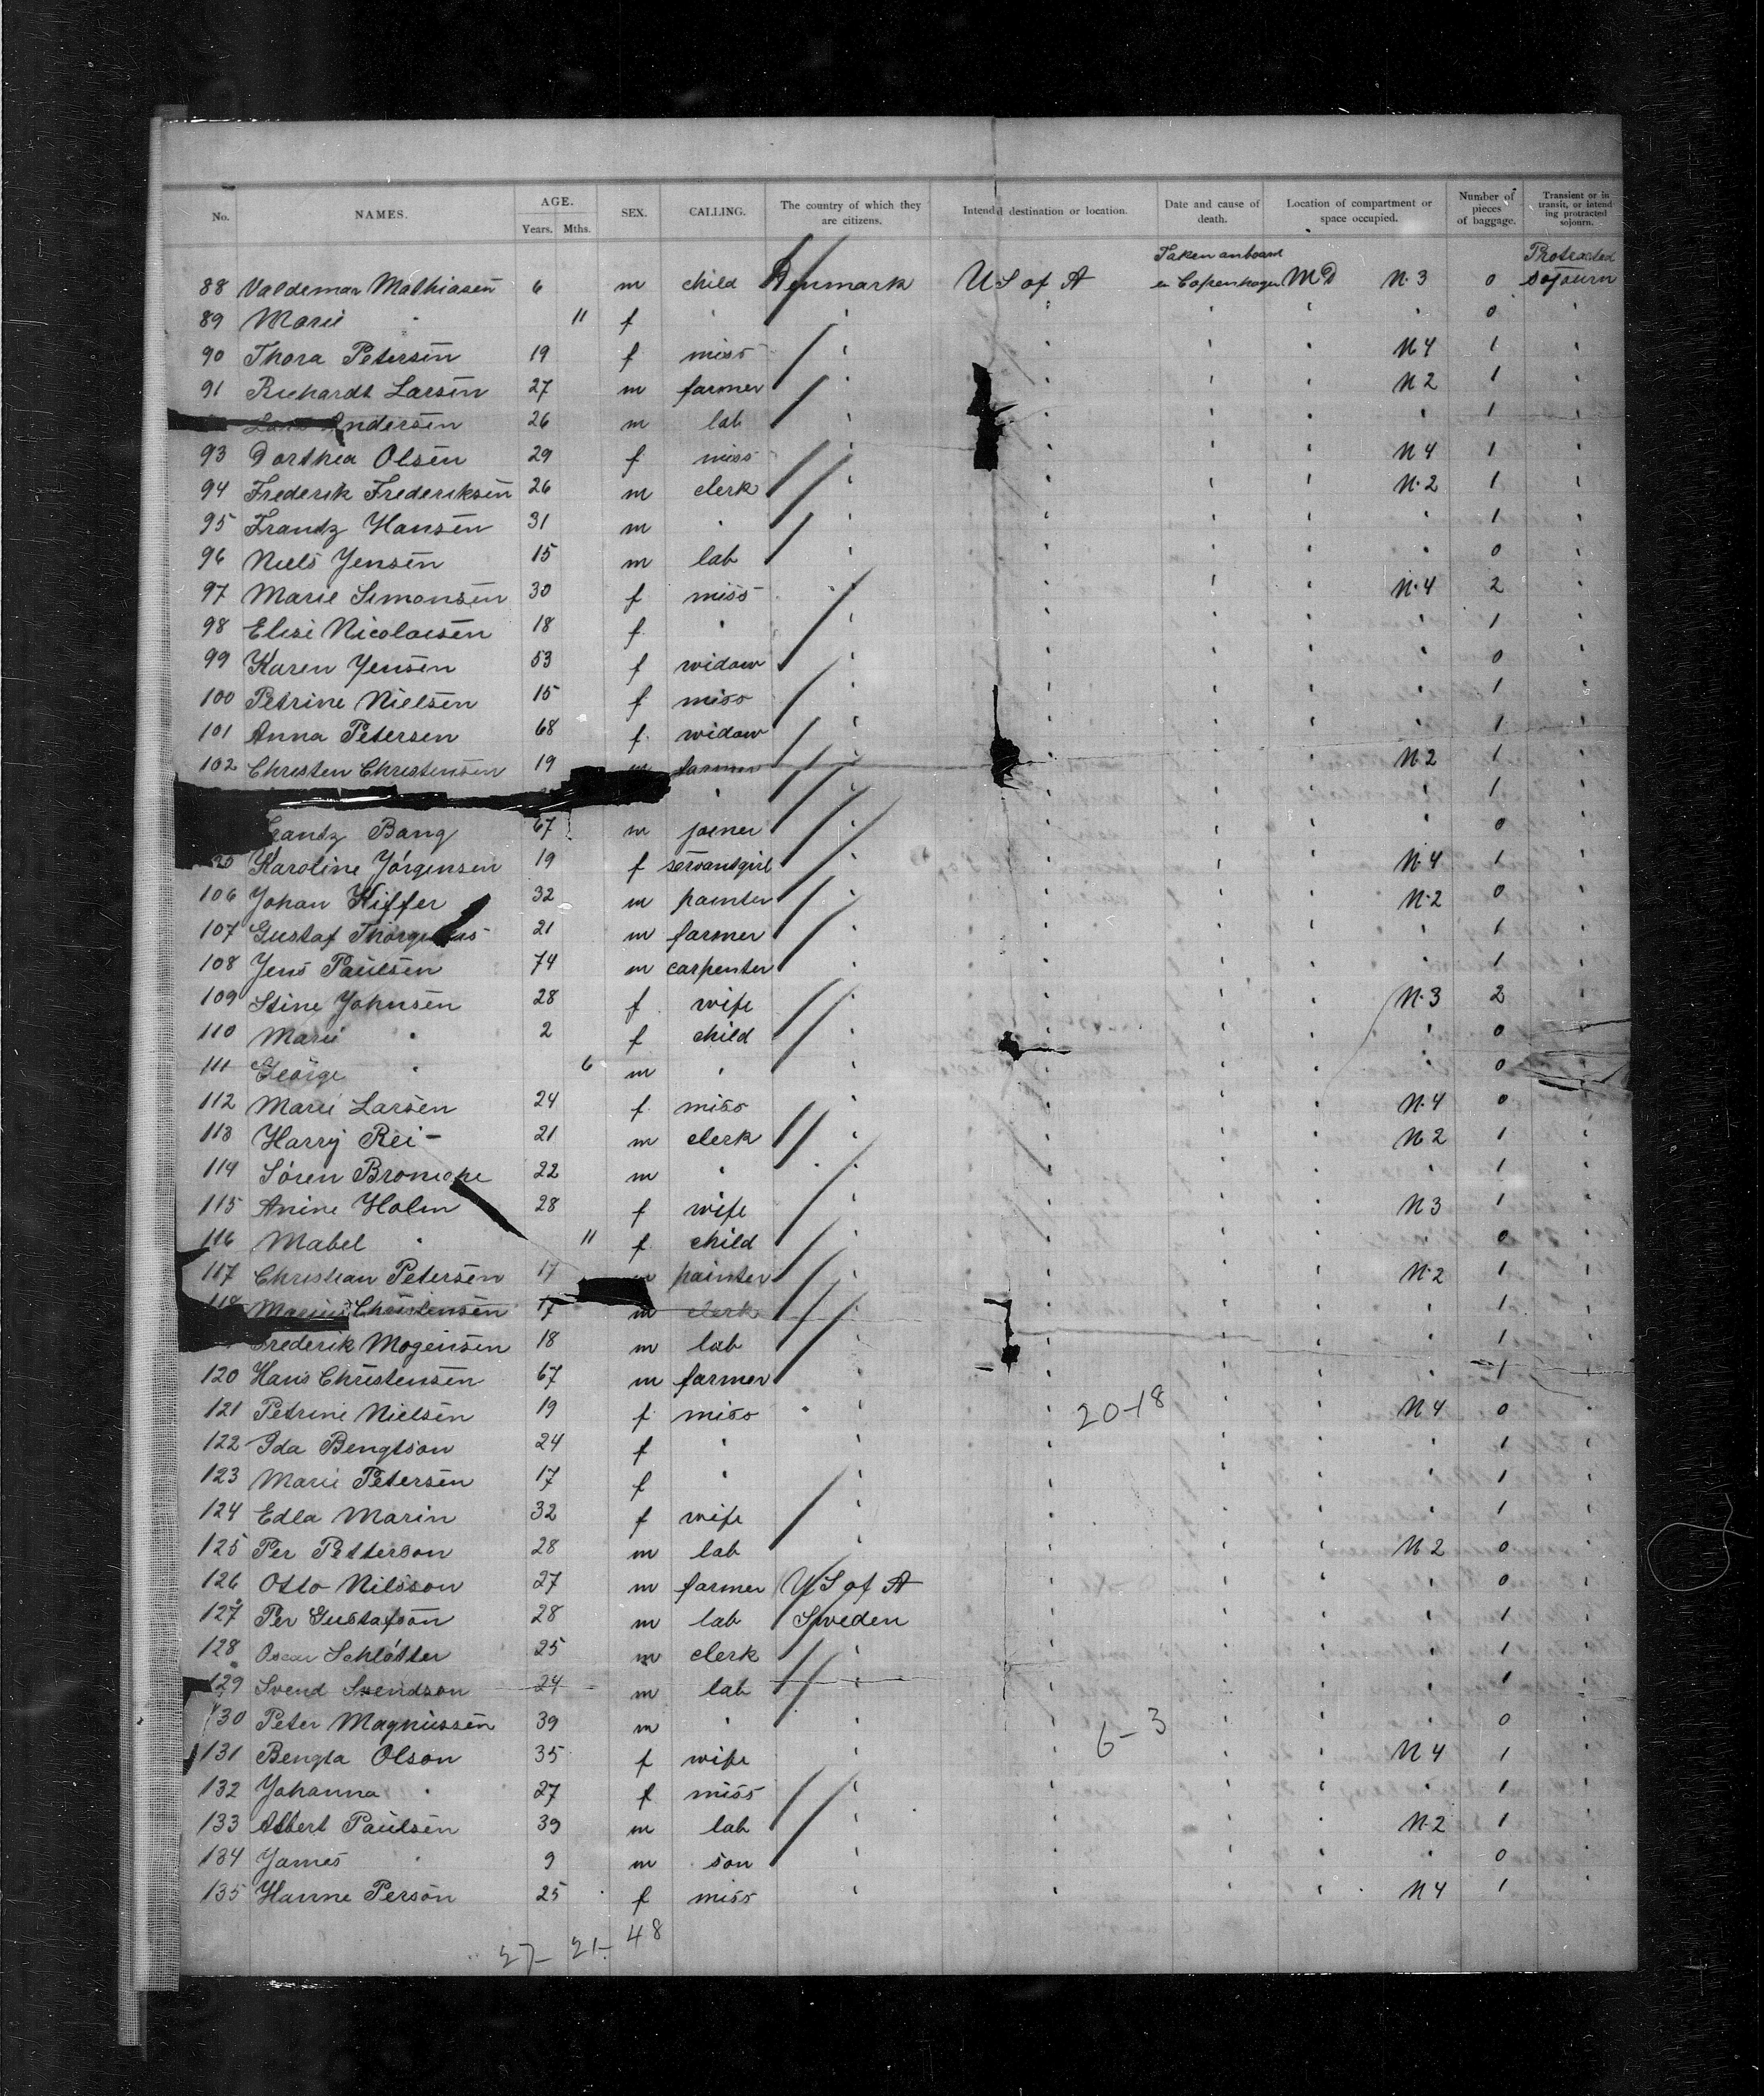 No. NAMES. AGE. Years. Mths. SEX. CALLING. The country of which they are citizens. Intended destination or location. Date and cause of death. Location of compartment or space occupied. Number of pieces of baggage. Transient or in transit, or intending protracted sojourn.
Taken onboard Protracted
88 Valdemar Mathiasen 6 m child Denmark US of A in Copenhagen MD N.3 0 sojourn
89 Marie " 11 f " " " " " " 0 "
90 Thora Petersen 19 f miss " " " " N4 1 "
91 Richardt Larsen 27 m farmer " " " " N2 1 "
Andersen 26 m lab " " " " " 1 "
93 Dorthea Olsen 29 f miss " " " " N4 1 "
94 Frederik Frederiksen 26 m clerk " " " " N.2 1 "
95 Frantz Hansen 31 m " " " " " " 1 "
96 Niels Jensen 15 m lab " " " " " 0 "
97 Marie Simonsen 30 f miss " " " " N.4 2 "
98 Elise Nicolaisen 18 f " " " " " " 1 "
99 Karen Jensen 53 f widow " " " " " 0 "
100 Petrine Nielsen 15 f miss " " " " " 1 "
101 Anna Petersen 68 f widow " " " " " 1 "
102 Christen Christensen 19 m farmer " " " " N2 1 "
" " " " " " 1 "
Frantz Bang 67 m joiner " " " " " 0 "
Karoline Jörgensen 19 f servantgirl " " " " N.4 1 "
106 Johan Kiffer 32 m painter " " " " N.2 0 "
107 Gustaf 21 m farmer " " " " " 1 "
108 Jens Paulsen 74 m carpenter " " " " " 1 "
109 Stine Johnsen 28 f wife " " " " N.3 2 "
110 Marie " 2 f child " " " " " 0 "
111 George " 6 m " " " " " " 0 "
112 Marie Larsen 24 f miss " " " " N.4 0 "
113 Harry Rei- 21 m clerk " " " " N2 1 "
114 Sören 22 m " " " " " " 1 "
115 Anine Holm 28 f wife " " " " N3 1 "
116 Mabel " 11 f child " " " " " 0 "
117 Christian Petersen 17 painter " " " " N.2 1 "
118 Marius Christensen 17 m clerk " " " " " 1 "
Frederik Mogensen 18 m lab " " " " " 1 "
120 Hans Christensen 67 m farmer " " " " " 1 "
121 Petrine Nielsen 19 f miss " " 20-18 " " N4 0 "
122 Ida Bengtson 24 f " " " " " " 1 "
123 Marie Petersen 17 f " " " " " " 1 "
124 Edla Marin 32 f wife " " " " " 1 "
125 Per Petterson 28 m lab " " " " N2 0 "
126 Otto Nilsson 27 m farmer US of A " " " " 0 "
127 Per Gustafson 28 m lab Sweden " " " " 1 "
128 Oscar Schlötter 25 m clerk " " " " " 1 "
129 Svend Svendson 24 m lab " " " " " 1 "
130 Peter Magnussen 39 m " " " 6-3 " " " 0 "
131 Bengta Olson 35 f wife " " " " N4 1 "
132 Johanna " 27 f miss " " " " " 1 "
133 Albert Paulsen 39 m lab " " " " N.2 1 "
134 James " 9 m son " " " " " 0 "
135 Hanne Person 25 f miss " " " " N4 1 "
27- 21- 48